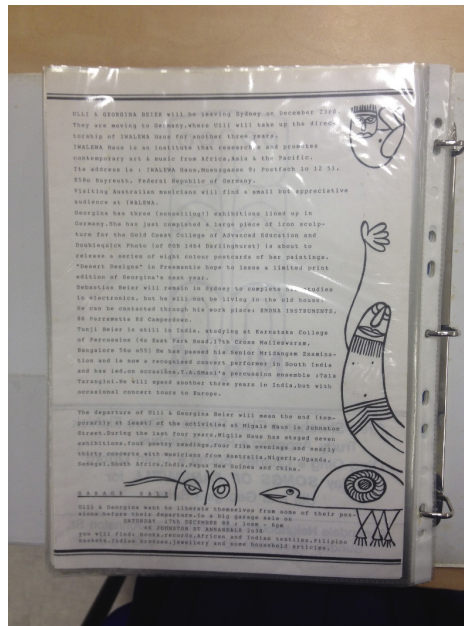 ULLI & GEORGINA BEIER will be leaving Sydney on December 23rd.
They are moving to Germany,where Ulli will take up the direc-
torship of IWALEWA Haus for another three years.
IWALEWA Haus is an institute that researches and promotes
contemporary art & music from Africa,Asia & the Pacific.
Its address is : IWALEWA Haus,Muenzgasse 9; Postfach 10 12 51,
8580 Bayreuth, Federal Republic of Germany.
Visiting Australian musicians will find a small but appreciative
audience at IWALEWA.
Georgina has three exhibitions lined up in
Germany.She has just completed a large piece of iron sculp-
ture for the Gold Coast College of Advanced Education and
Doublequick Photo (of POB 1084 Darlinghurst) is about to
release a series of eight colour postcards of her paintings.
"Desert Designs" in Freemantle hope to issue a limited print
edition of Georgina's next year.
Sebastian Beier will remain in Sydney to complete his studies
in electronics, but he will not be living in the old house.
He can be contacted through his work place: INSTRUMENTS,
Parramatta Rd Camperdown.
Tunji Beier is still in India, studying at Karnataka College
of Percussion East Park Road,17th Cross Malleswaram,
Bangalore 560 055) He has passed his Senior Mridangam Examina-
tion and is now a recognised concert performer in South India
and has led,on occasions,T.A.S.Mani's percussion ensemble :Tala
Tarangini.He will spend another three years in India,but with
occasional concert tours to Europe.
The departure of Ulli & Georgina Beier will mean the end (tem-
porarily at least) of the activities at Migila Haus in Johnston
Street.During the last four years,Migila Haus has staged seven
exhibitions,four poetry readings,four film evenings and nearly
thirty concerts with musicians from Australia,Nigeria,Uganda,
Senegal,South Africa,India,Papua New Guinea and China.
GARAGE SALE
Ulli & Georgina want to liberate themselves from some of their pos-
sessions before their departure.In a big garage sale on
SATURDAY 17th DECEMBER : 10am - 6pm
JOHNSTON ST ANNANDALE 2038
you will find: books,records,African and Indian textiles,Filipino
baskets,Indian bronzes,jewellery and some household articles.